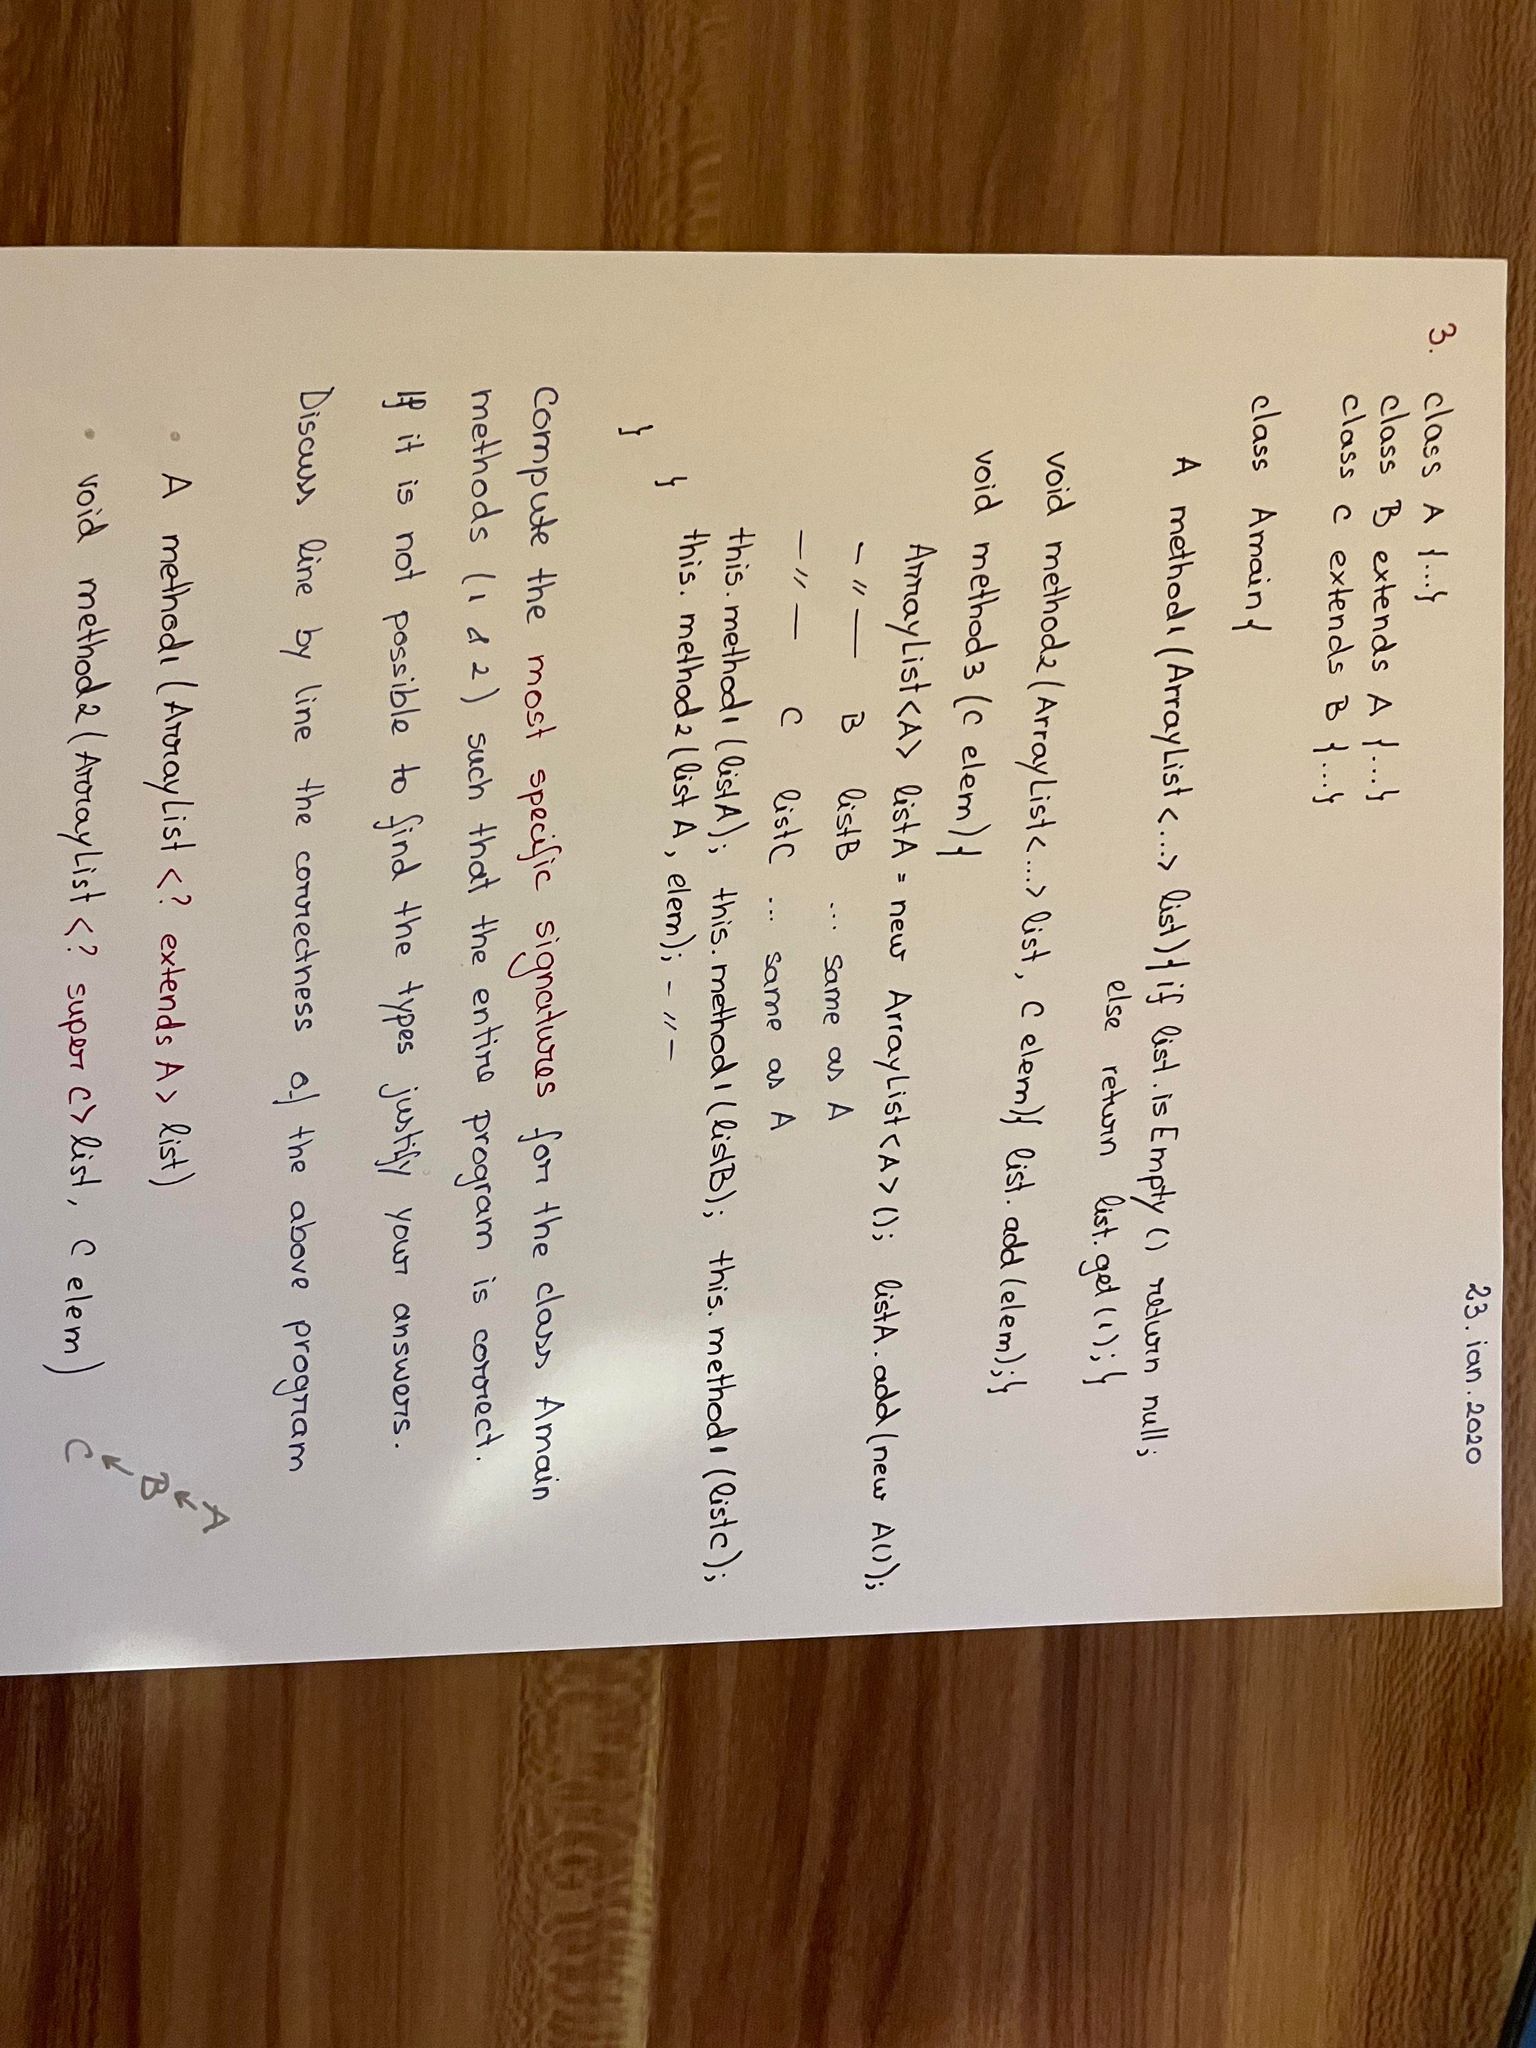 23. ian. 2020
3. class A {...}
class B extends A {...}
class C extends B {...}
class Amain {
A method1 (ArrayList <...> list) { if list.isEmpty () return null;
else return list.get (1); }
void method2 (ArrayList <...> list, C elem) { list.add (elem); }
void method3 (C elem) {
ArrayList<A> listA = new ArrayList<A> (); listA.add (new A());
— // — B listB ... same as A
— // — C listC ... same as A
this.method1 (listA); this.method1 (listB); this.method1 (listC);
} this.method2 (list A, elem); - // -
}
Compute the most specific signatures for the class Amain
methods (1 & 2) such that the entire program is correct.
If it is not possible to find the types justify your answers.
Discuss line by line the correctness of the above program
• A method1 (ArrayList <? extends A> list)
• void method2 (ArrayList <? super C> list, C elem)
A
B
C